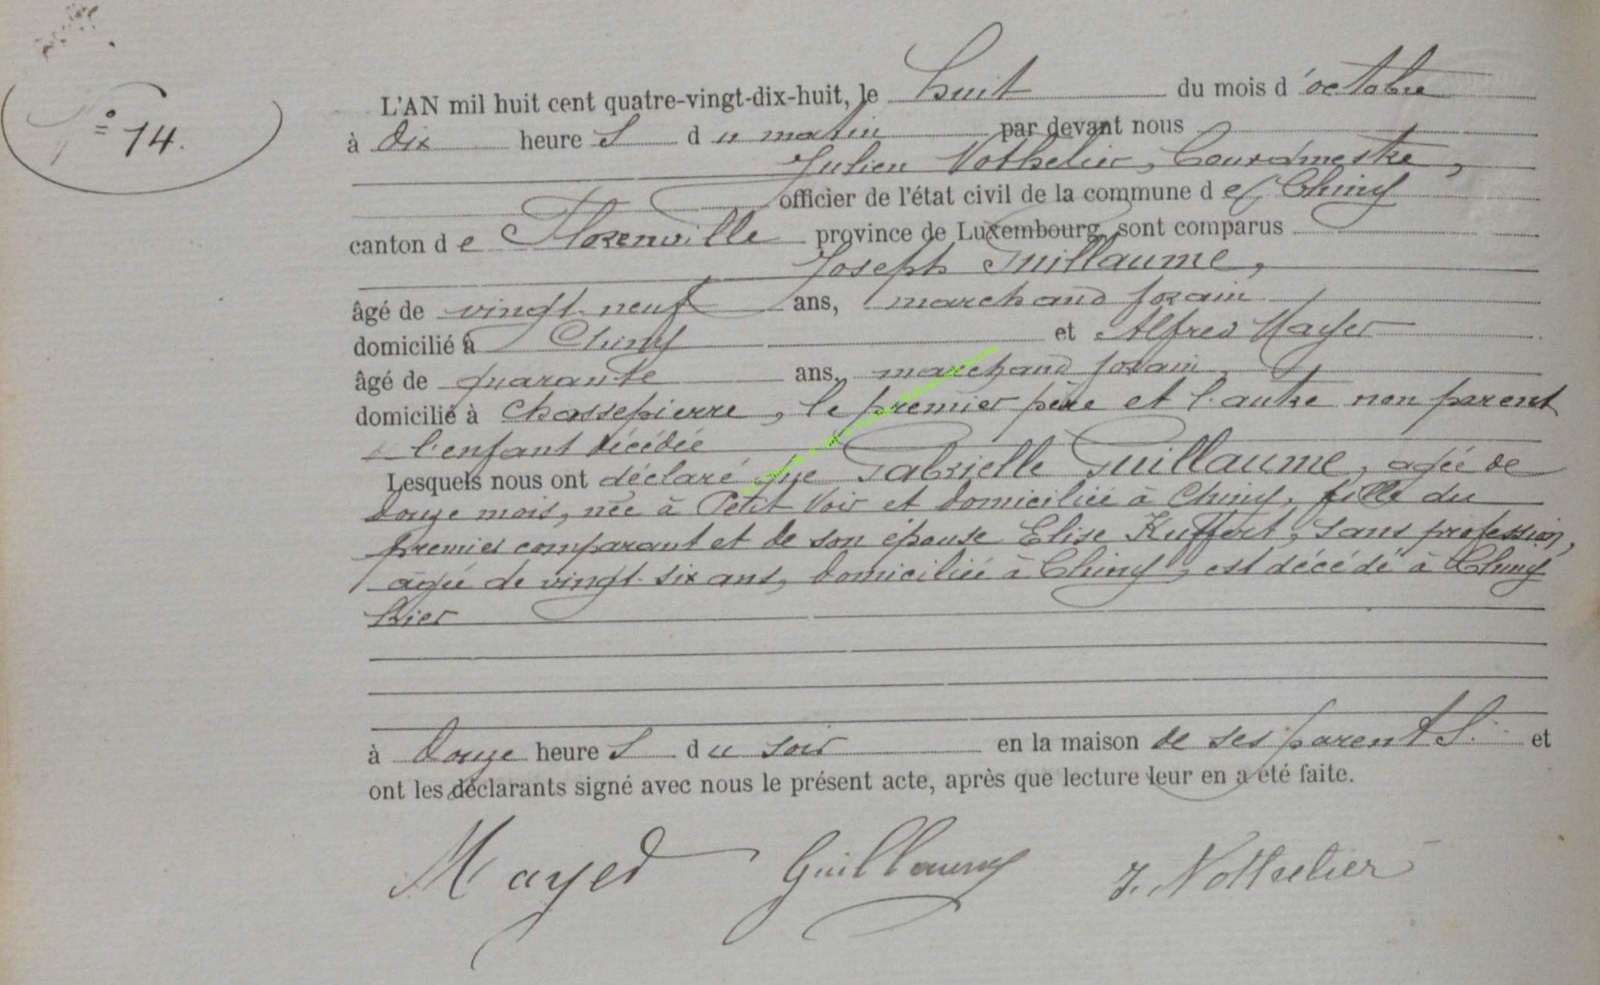 N° 14.
L'AN mil huit cent quatre-vingt-dix-huit, le huit du mois d'octobre
à dix heures du matin par devant nous
Julien Nothelier, Bourgmestre,
officier de l'état civil de la commune de Chiny
canton de Florenville province de Luxembourg, sont comparus
Joseph Guillaume,
âgé de vingt-neuf ans, marchand forain
domicilié à Chiny et Alfred Mayer
âgé de quarante ans, marchand forain,
domicilié à Chassepierre, le premier père et l'autre non parent
l'enfant décédée
Lesquels nous ont déclaré que Gabrielle Guillaume, agée de
douze mois, née à Petit Voir et domiciliée à Chiny, fille du
premier comparant et de son épouse Elise Kuffert, sans profession,
agée de vingt-six ans, domiciliée à Chiny, est décédé à Chiny
hier
à douze heures du soir en la maison de ses parents. et
ont les déclarants signé avec nous le présent acte, après que lecture leur en a été faite.
Mayer Guillaume J. Nothelier